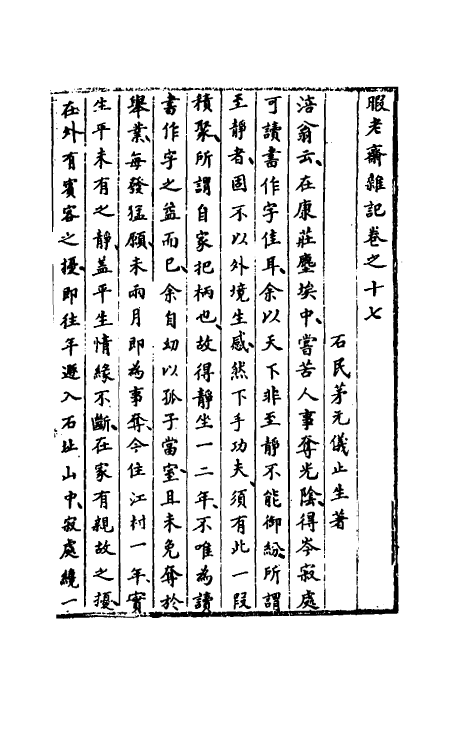 暇老齋雜記卷之十七
石民茅元儀止生著
涪翁云在康莊塵埃中嘗苦人事奪光陰得岑寂處
可讀書作字佳耳余以天下非至靜不能御紛所謂
至靜者固不以外境生感然下手功夫須有此一段
積聚所謂自家把柄也故得靜坐一二年不唯為讀
書作字之益而已余自幼以孤子當室且未免奪於
舉業每發猛願未兩月即為事奪今住江村一年實
生平未有之靜盖平生情緣不斷在家有親故之擾
在外有賓客之擾即往年遯入石址山中寂處纔一